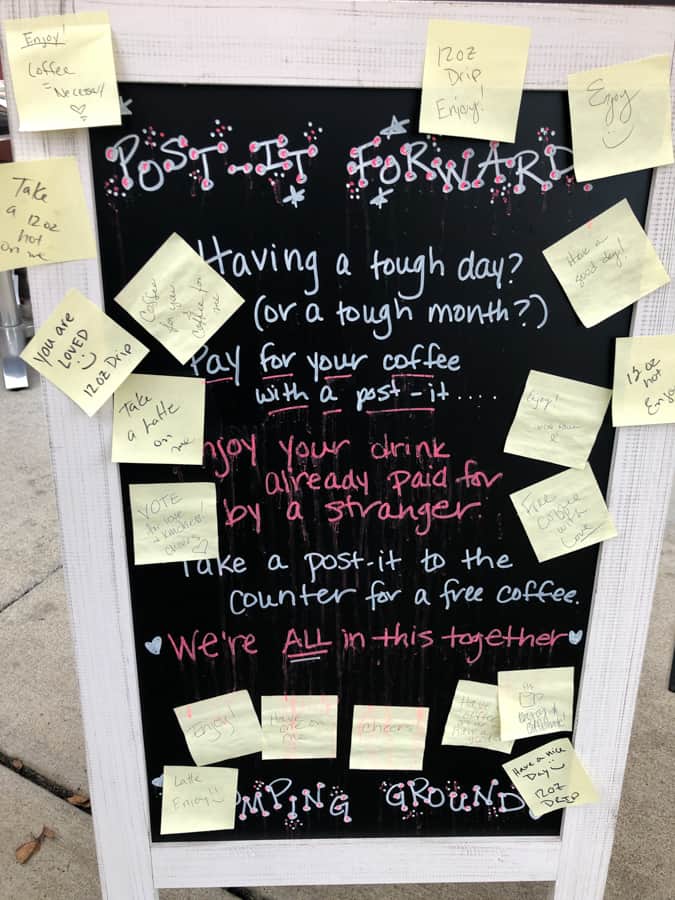 Enjoy!
Coffee
= Necessary
12oz
Drip
Enjoy!
Enjoy
POST-IT FORWARD
Take
a 12oz
hot
on me
Have a
good day!
Having a tough day?
(or a tough month?)
Coffee
for you
Coffee for
me
you are
LOVED
12oz Drip
Pay for your coffee
with a post-it....
12oz
hot
Enjoy
Take
a Latte
on
me
Enjoy!
njoy your drink
already paid for
by a stranger
VOTE
for love
+ kindness!
Cheers
Free
Coffee
with
Love
Take a post-it to the
counter for a free coffee.
We're ALL in this together
Enjoy!
Have
one on
me
Cheers
Have
coffee
on me
Have a nice
Day
12oz
DRIP
Latte
Enjoy
MPING GROUND